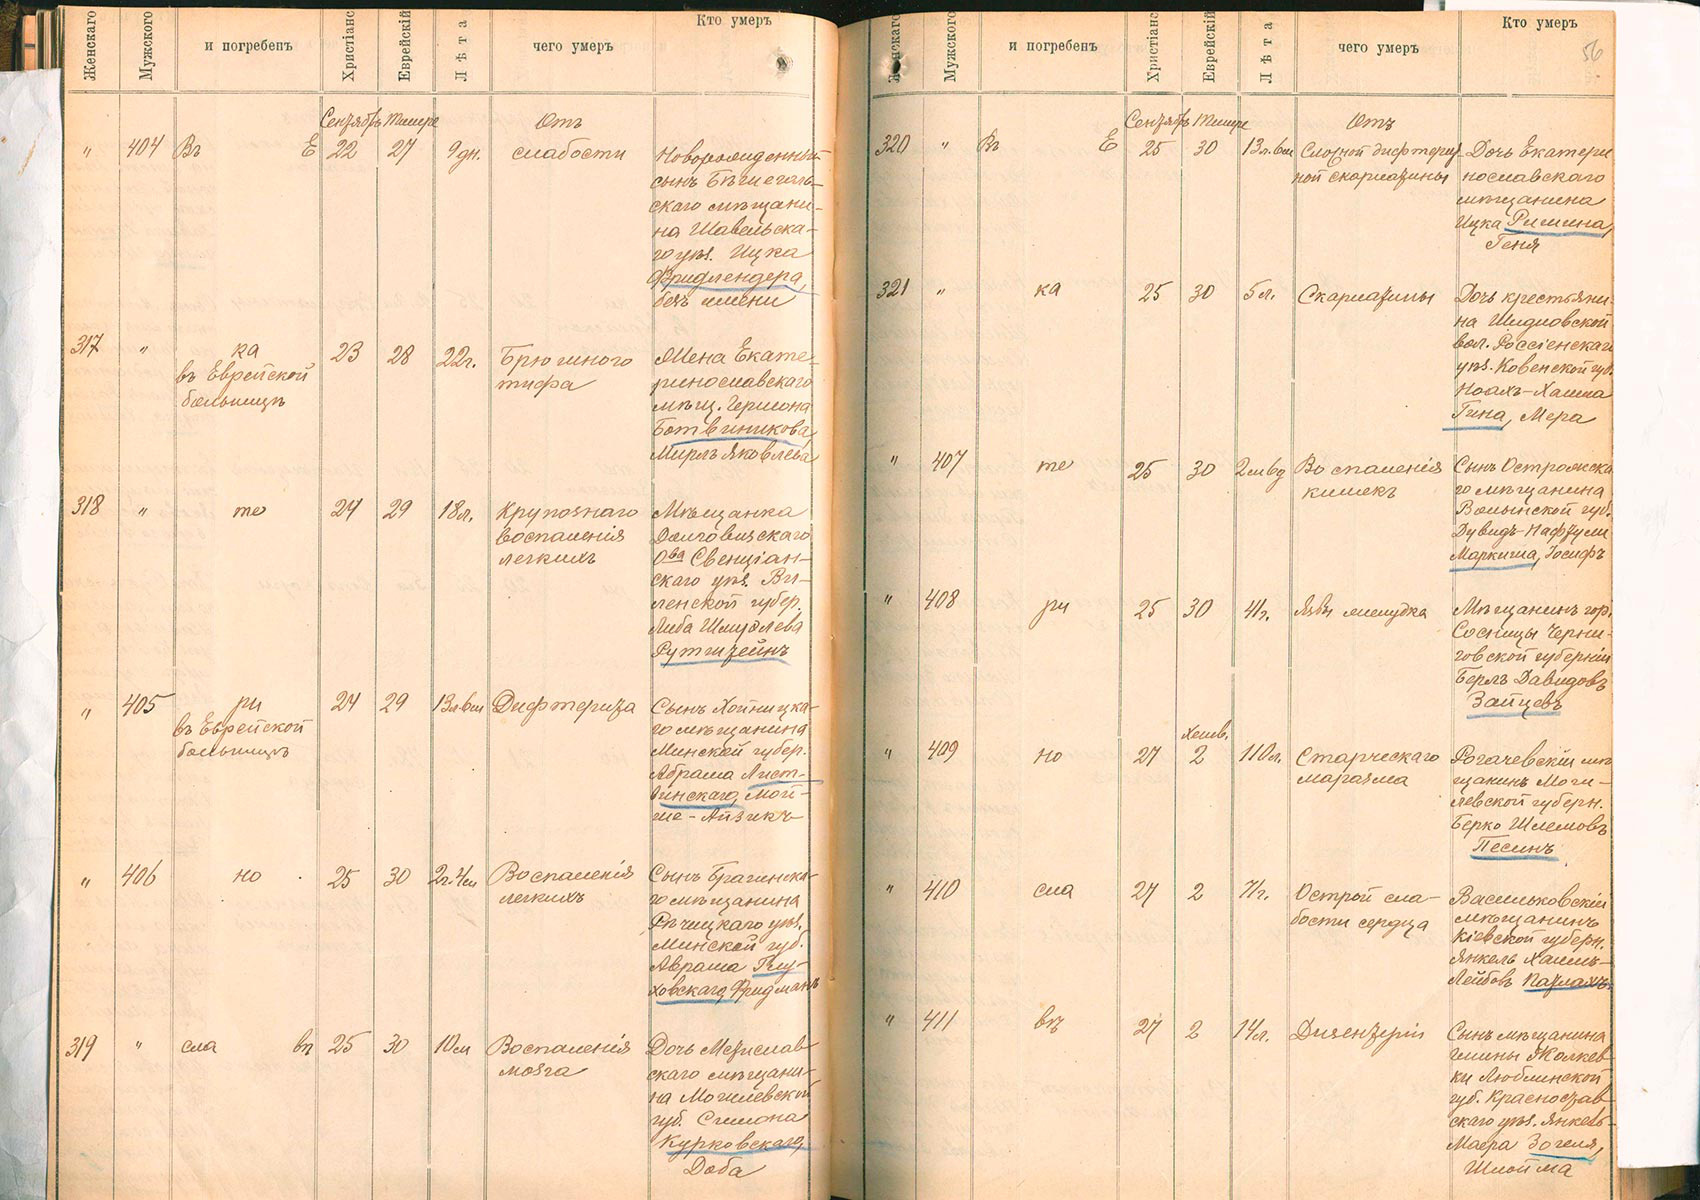 Женскаго
Мужского
и погребенъ
Христіанс
Еврейскій
Лѣта
чего умеръ
Кто умеръ
Сентябрь Тишре
Отъ
" 404 Въ Е 22 27 9 дн. слабости
Новорожденный
сынъ
скаго мѣщани-
на Шавельска-
го уѣз. Ицка
Фридлендера,
безъ имени
317 " ка 23 28 22 г. Брюшного
въ Еврейской
больницѣ
тифа
Жена Екате-
ринославскаго
мѣщ. Гершона
Ботвиникова,
Мирлъ Яковлева
318 " те 24 29 18 л. Крупознаго
воспаленія
легкихъ
Мѣщанка
Долговичскаго
Ова Свенціан-
скаго уѣз. Ви-
ленской губер.
Либа Шмуэлева
" 405 ри 24 29 13 л 6 м Дифтерита
въ Еврейской
больницѣ
Сынъ Хойницка-
го мѣщанина
Минской губер.
Абрама Лист-
винскаго, Мой-
ше-Айзикъ
" 406 но 25 30 2 г. 4 м Воспаленія
легкихъ
Сынъ Брагинска-
го мѣщанина
Рѣчицкаго уѣз.
Минской губ.
Авраама Глу-
ховскаго, Фридманъ
319 " сла въ 25 30 10 м Воспаленія
мозга
Дочь Мстислав-
скаго мѣщани-
на Могилевской
губ. Симона
Курковскаго,
Доба
Женскаго
Мужского
и погребенъ
Христіанс
Еврейскій
Лѣта
чего умеръ
Кто умеръ
56
Сентябрь Тишре
Отъ
320 " Въ Е 25 30 13 л. 6 м Сложной дифтерит
ной скарлатины
Дочь Екатери
нославскаго
мѣщанина
Ицка Римина,
Геня
321 " ка 25 30 5 л. Скарлатины
Дочь крестьяни-
на Шидловской
вол. Россіенскаго
уѣз. Ковенской губ.
Ноахъ-Хаима
Гина, Мера
" 407 те 25 30 2 м 6 д Воспаленія
кишекъ
Сынъ Острожска
го мѣщанина
Волынской губ.
Дувидъ-Нафтули
Маркиша, Іосифъ
" 408 ри 25 30 41 г. Язвы желудка
Мѣщанинъ гор.
Сосницы Черни-
говской губерніи
Берлъ Давидовъ
Зайцевъ
Хешв.
" 409 но 27 2 110 л. Старческаго
маразма
Рогачевскій мѣ
щанинъ Моги-
левской губерн.
Берко Шлемовъ
Песинъ
" 410 сла 27 2 71 г. Острой сла-
бости сердца
Васильковскій
мѣщанинъ
Кіевской губерн.
Янкель Хаимъ-
Лейбовъ
" 411 въ 27 2 14 л. Дизентеріи
Сынъ мѣщанина
гмины Жолкев-
ки Люблинской
губ. Красностав-
скаго уѣз. Янкель-
Маера Зогеля,
Шлойма